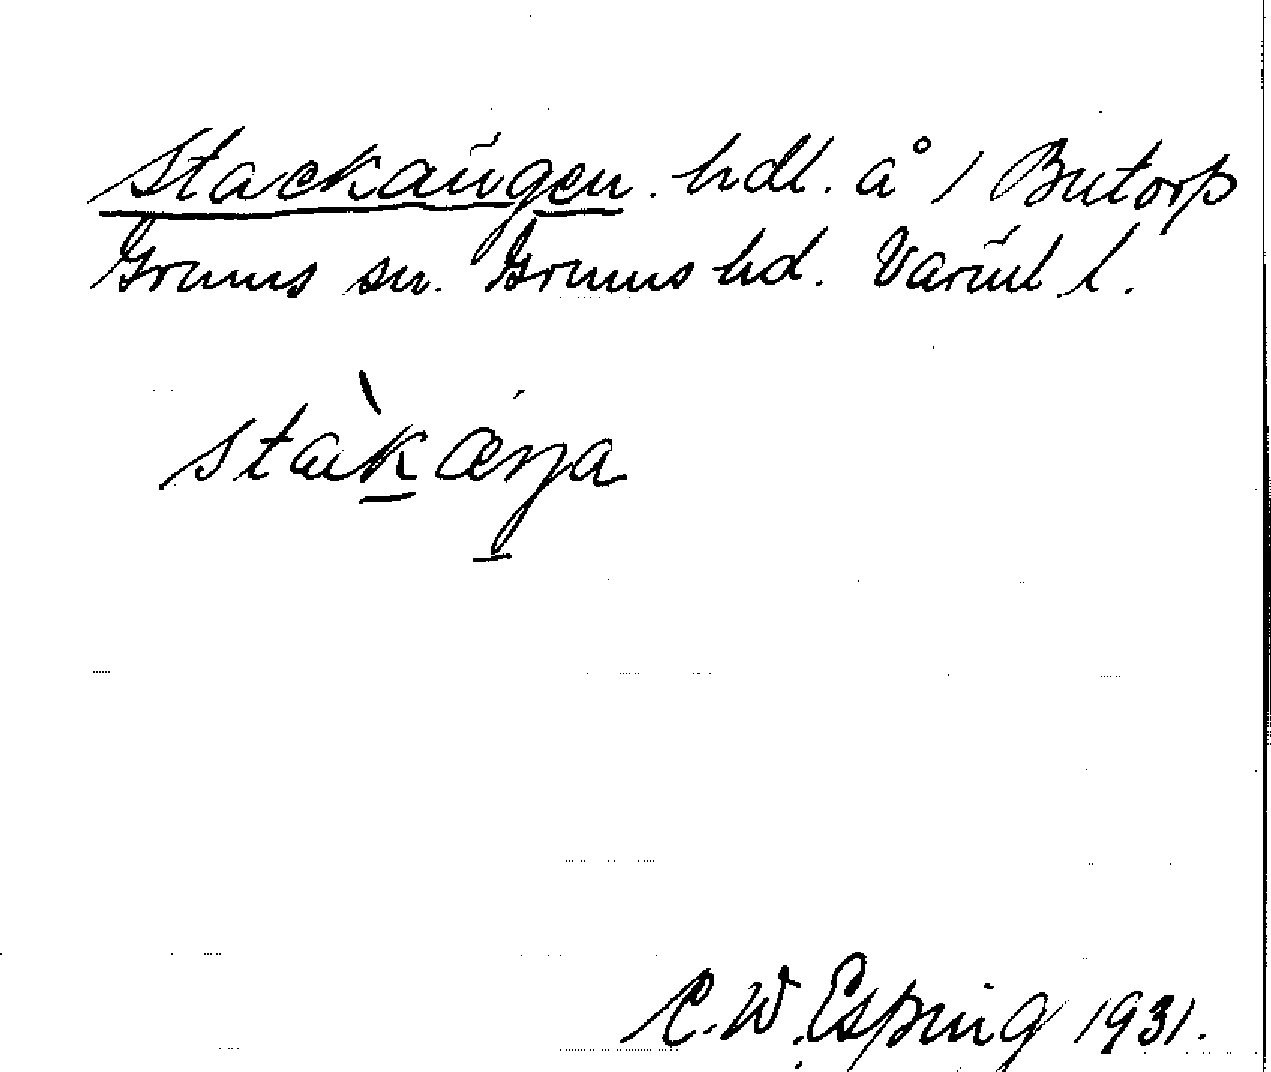 Stackängen. hdl. å 1 Butorp
Grums sn. Grums hd. Värml l.
stàkæŋa
C. W. Esping 1931.